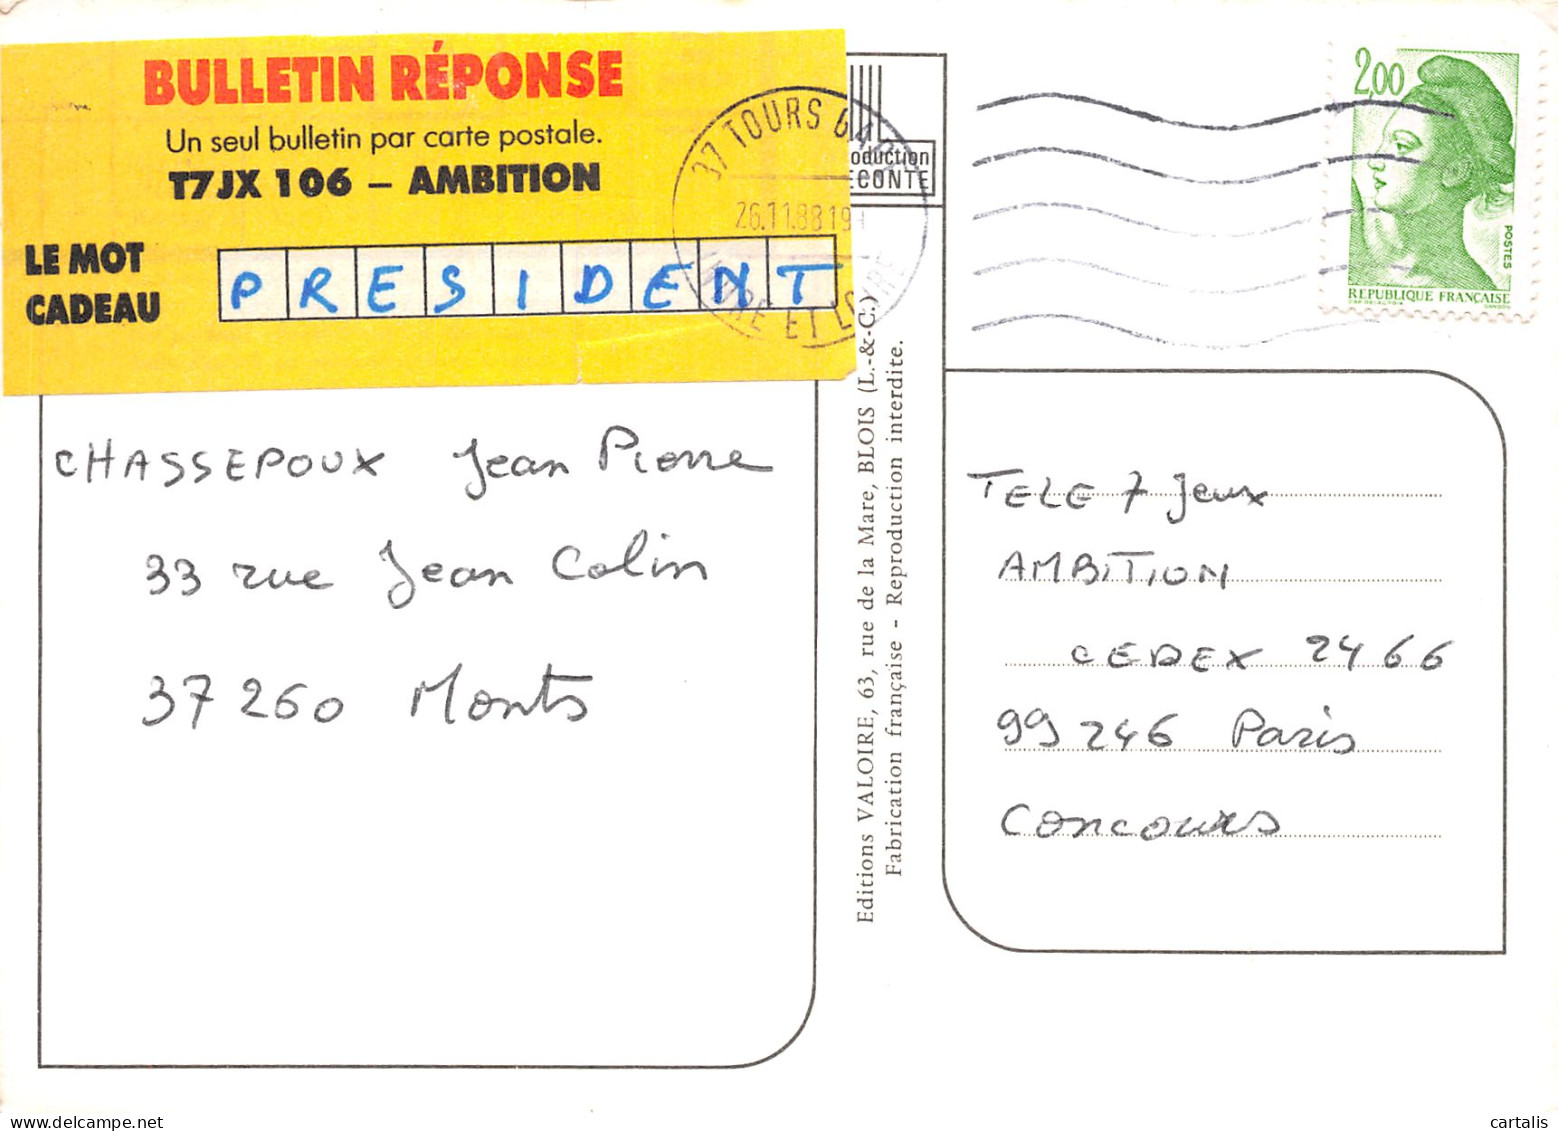 BULLETIN RÉPONSE
Un seul bulletin par carte postale.
T7JX 106 – AMBITION
LE MOT
CADEAU
PRESIDENT
37 TOURS GARE
26.11.88 19H
INDRE ET LOIRE
oduction
ECONTE
2,00
POSTES
REPUBLIQUE FRANÇAISE
CHASSEPOUX Jean Pierre
33 rue Jean Colin
37260 Monts
Editions VALOIRE, 63, rue de la Mare, BLOIS (L.-&-C.)
Fabrication française - Reproduction interdite.
TELE 7 Jeux
AMBITION
CEDEX 2466
99246 Paris
Concours
cartalis